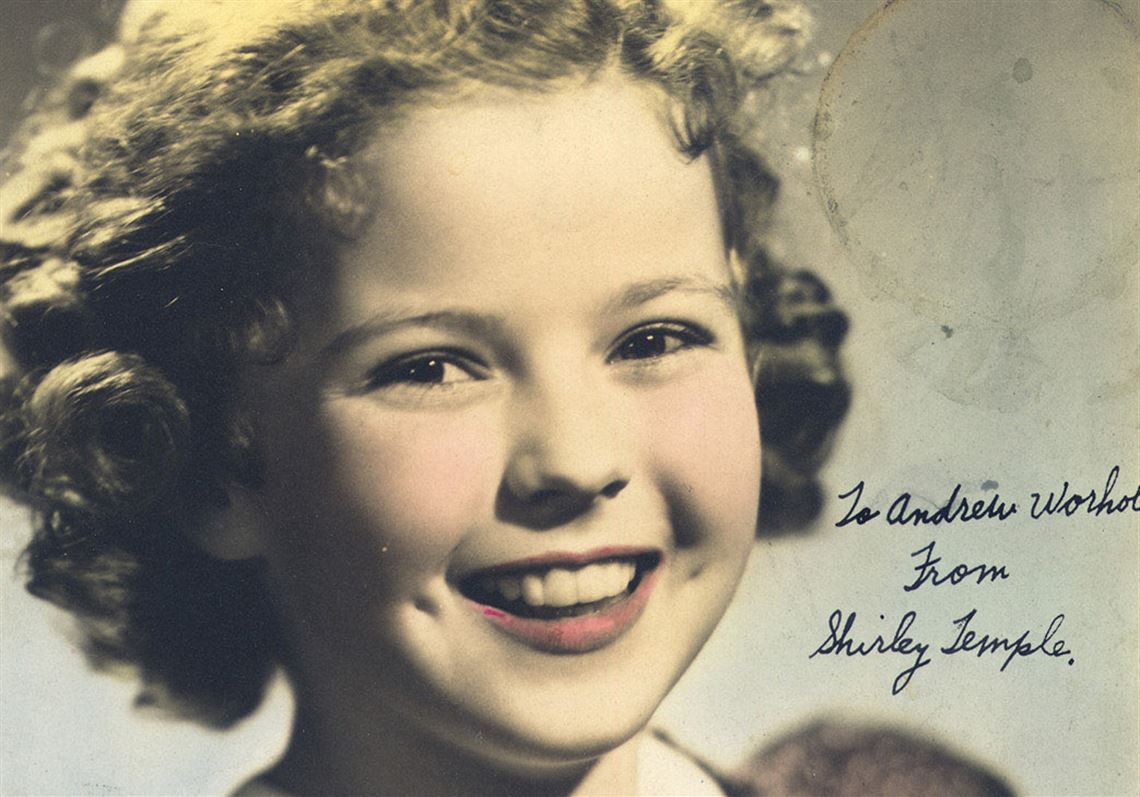 To Andrew Worhol
From
Shirley Temple.